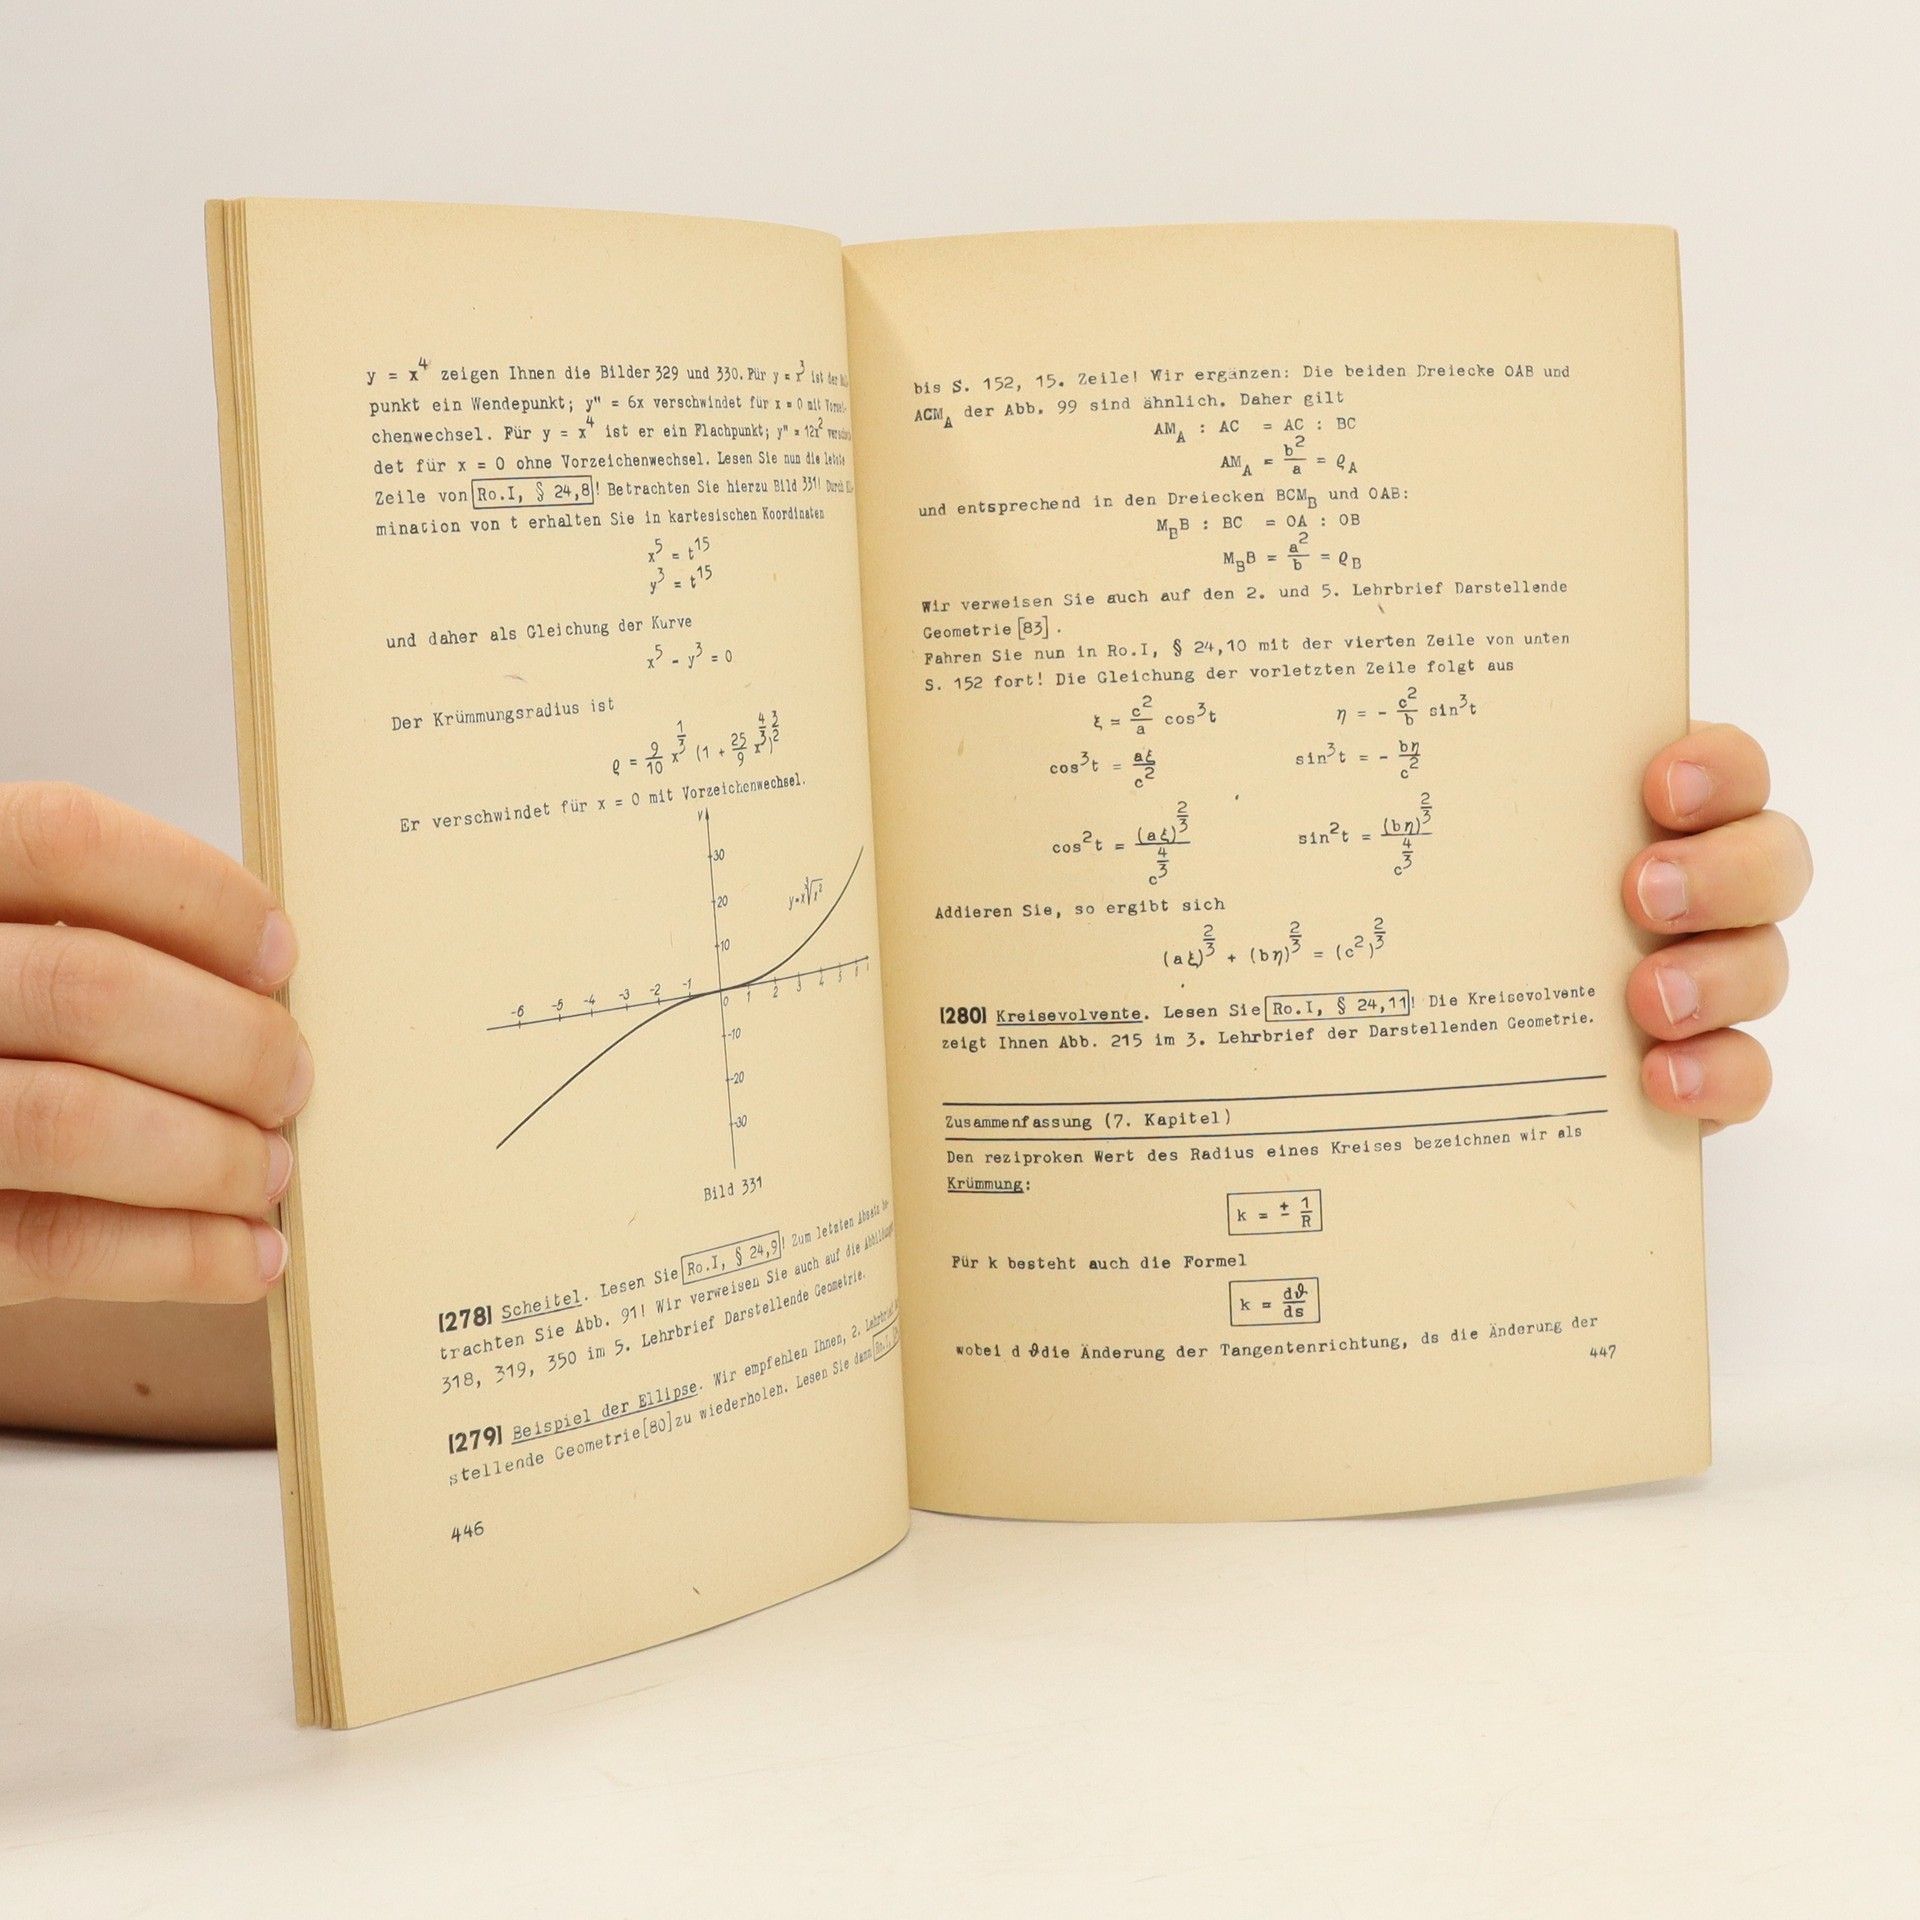 y = x⁴ zeigen Ihnen die Bilder 329 und 330. Für y = x³ ist der
punkt ein Wendepunkt; y" = 6x verschwindet für x = 0 mit Vorzei-
chenwechsel. Für y = x⁴ ist er ein Flachpunkt; y" = 12x²
det für x = 0 ohne Vorzeichenwechsel. Lesen Sie nun die letzte
Zeile von Ro.I, § 24,8! Betrachten Sie hierzu Bild 331! Durch Eli-
mination von t erhalten Sie in kartesischen Koordinaten
x⁵ = t¹⁵
y³ = t¹⁵
und daher als Gleichung der Kurve
x⁵ - y³ = 0
Der Krümmungsradius ist
ϱ = 9/10 x^(1/3) (1 + 25/9 x^(4/3))^(3/2)
Er verschwindet für x = 0 mit Vorzeichenwechsel.
y
30
20
10
y=x∛x²
-6 -5 -4 -3 -2 -1 0 1 2 3 4 5 6
-10
-20
-30
Bild 331
[278] Scheitel. Lesen Sie Ro.I, § 24,9! Zum letzten Absatz be-
trachten Sie Abb. 91! Wir verweisen Sie auch auf die Abbildungen
318, 319, 350 im 5. Lehrbrief Darstellende Geometrie.
[279] Beispiel der Ellipse. Wir empfehlen Ihnen, 2. Lehrbrief
stellende Geometrie [80] zu wiederholen. Lesen Sie dann Ro.I,
446
bis S. 152, 15. Zeile! Wir ergänzen: Die beiden Dreiecke OAB und
ACM_A der Abb. 99 sind ähnlich. Daher gilt
AM_A : AC = AC : BC
AM_A = b²/a = ϱ_A
und entsprechend in den Dreiecken BCM_B und OAB:
M_BB : BC = OA : OB
M_BB = a²/b = ϱ_B
Wir verweisen Sie auch auf den 2. und 5. Lehrbrief Darstellende
Geometrie [83].
Fahren Sie nun in Ro.I, § 24,10 mit der vierten Zeile von unten
S. 152 fort! Die Gleichung der vorletzten Zeile folgt aus
ξ = c²/a cos³t η = - c²/b sin³t
cos³t = aξ/c² sin³t = - bη/c²
cos²t = (aξ)^(2/3)/c^(4/3) sin²t = (bη)^(2/3)/c^(4/3)
Addieren Sie, so ergibt sich
(aξ)^(2/3) + (bη)^(2/3) = (c²)^(2/3)
[280] Kreisevolvente. Lesen Sie Ro.I, § 24,11! Die Kreisevolvente
zeigt Ihnen Abb. 215 im 3. Lehrbrief der Darstellenden Geometrie.
Zusammenfassung (7. Kapitel)
Den reziproken Wert des Radius eines Kreises bezeichnen wir als
Krümmung:
k = ± 1/R
Für k besteht auch die Formel
k = dϑ/ds
wobei d ϑ die Änderung der Tangentenrichtung, ds die Änderung der
447